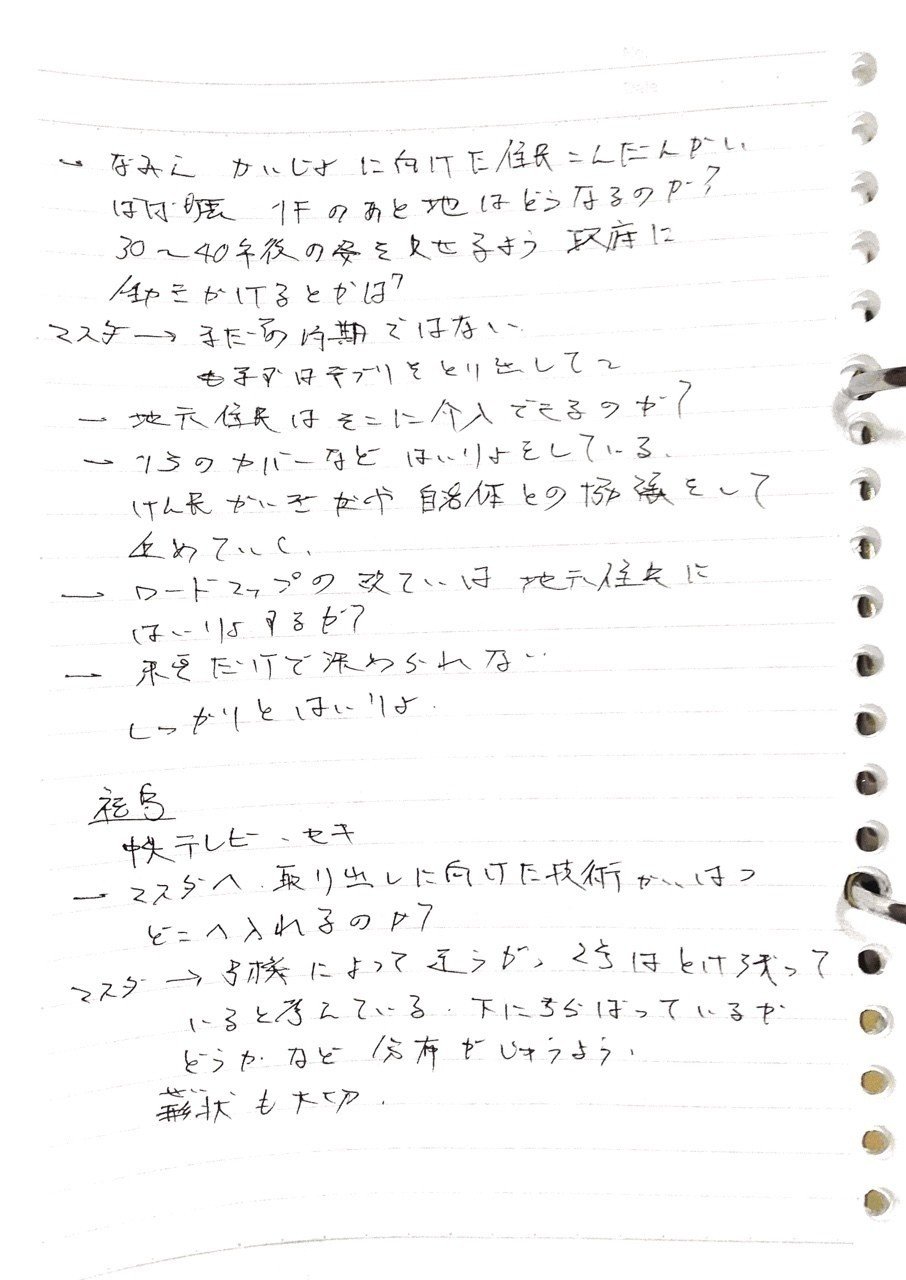 → なみえ かいじょに向けた住民こんだんかい
1Fのあと地はどうなるのか?
30〜40年後の姿を見せるよう 政府に
働きかけるとかは?
マスダ → まだその時期ではない.
まずはデブリをとり出して
→ 地元住民はそこに介入できるのか?
→ 1号のカバーなど はいりょをしている.
けん民かいぎや 自治体との協議をして
進めていく.
→ ロードマップの改ていは 地元住民に
はいりょするか?
→ だけで決められない
しっかりとはいりょ.
福島
中央テレビ・セキ
→ マスダへ. 取り出しに向けた技術かいはつ
どこへ入れるのか?
マスダ → 号機によって違うが、2号はとけ残って
いると考えている. 下にちらばっているか
どうかなど 分布がじゅうよう.
形状も大切.